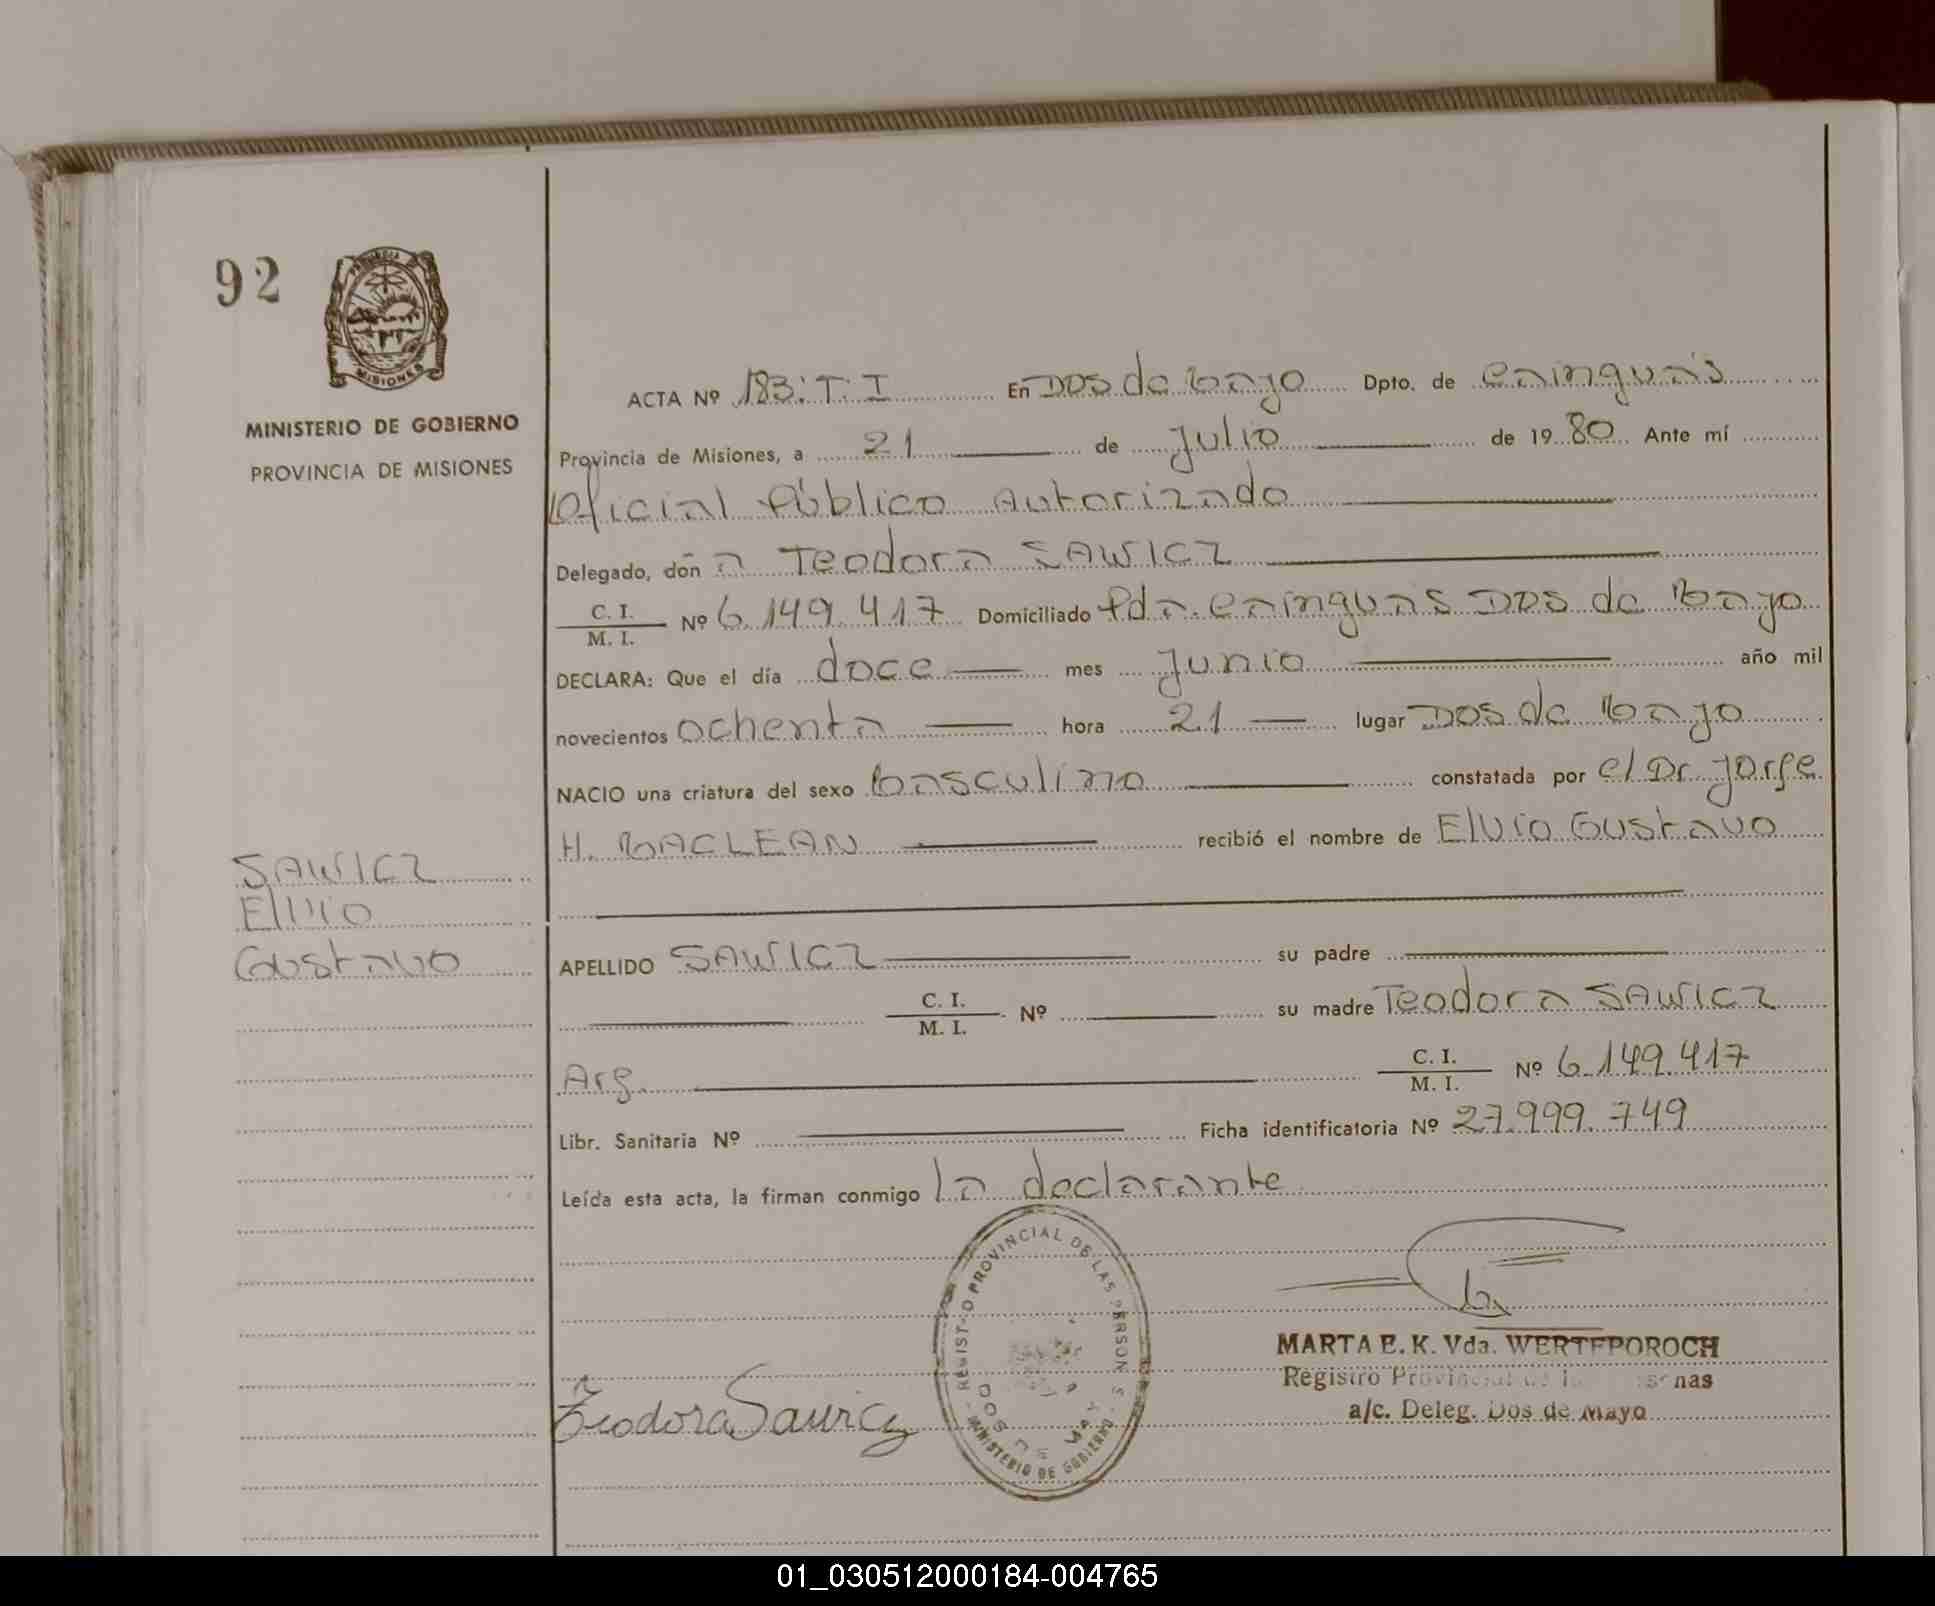 92
PROVINCIA DE
MISIONES
MINISTERIO DE GOBIERNO
PROVINCIA DE MISIONES
ACTA Nº 183: T: I En Dos de Mayo Dpto. de Cainguás
Provincia de Misiones, a 21 de Julio de 1980 Ante mí
Oficial Público Autorizado
Delegado, don a Teodora SAWICZ
C. I.
M. I. Nº 6.149.417 Domiciliado Pda. Cainguás Dos de Mayo
DECLARA: Que el día doce mes Junio año mil
novecientos ochenta hora 21 lugar Dos de Mayo
NACIO una criatura del sexo Masculino constatada por el Dr. Jorge
H. MACLEAN recibió el nombre de Elvio Gustavo
SAWICZ
Elvio
Gustavo
APELLIDO SAWICZ su padre
C. I.
M. I. Nº su madre Teodora SAWICZ
Arg. C. I.
M. I. Nº 6.149.417
Libr. Sanitaria Nº Ficha identificatoria Nº 27.999.749
Leída esta acta, la firman conmigo la declarante
REGISTRO PROVINCIAL DE LAS PERSONAS
DOS DE MAYO
- MINISTERIO DE GOBIERNO -
Teodora Sawicz
MARTA E. K. Vda. WERTEPOROCH
Registro Provincial de las Personas
a/c. Deleg. Dos de Mayo
01_030512000184-004765